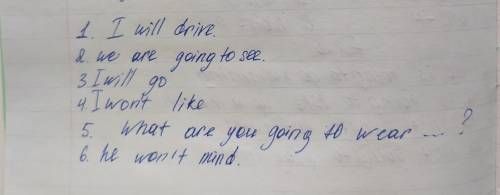 1. I will drive.
2. we are going to see.
3. I will go
4. I won't like
5. What are you going to wear ... ?
6. he won't mind.